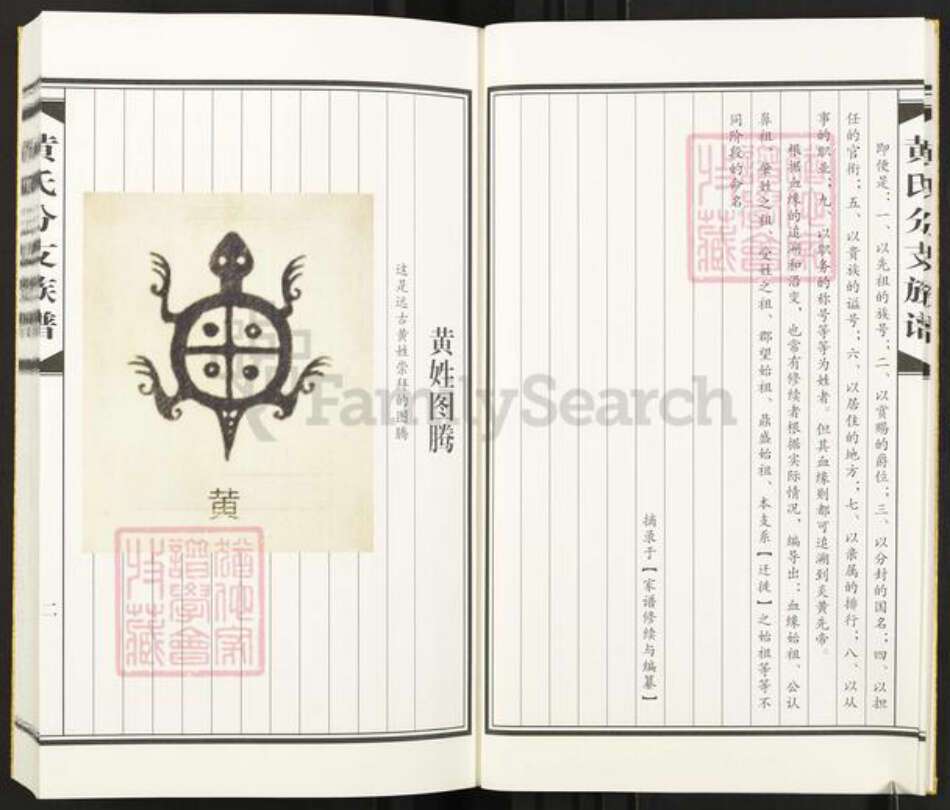 黄氏分支族谱
即便是：一、以先祖的族号；二、以赏赐的爵位；三、以分封的国名；四、以担
任的官衔；五、以贵族的谥号；六、以居住的地方；七、以亲属的排行；八、以从
事的职业；九、以职务的称号等等为姓者。但其血缘则都可追溯到炎黄先帝。
根据血缘的追溯和沿变，也常有修续者根据实际情况，编导出：血缘始祖、公认
鼻祖、肇姓之祖、受姓之祖、郡望始祖、鼎盛始祖、本支系【迁徙】之始祖等等不
同阶段的命名
摘录于【家谱修续与编纂】
黄姓图腾
这是远古黄姓崇拜的图腾
黄
黄氏分支族谱
二
FamilySearch
譜學會
收藏